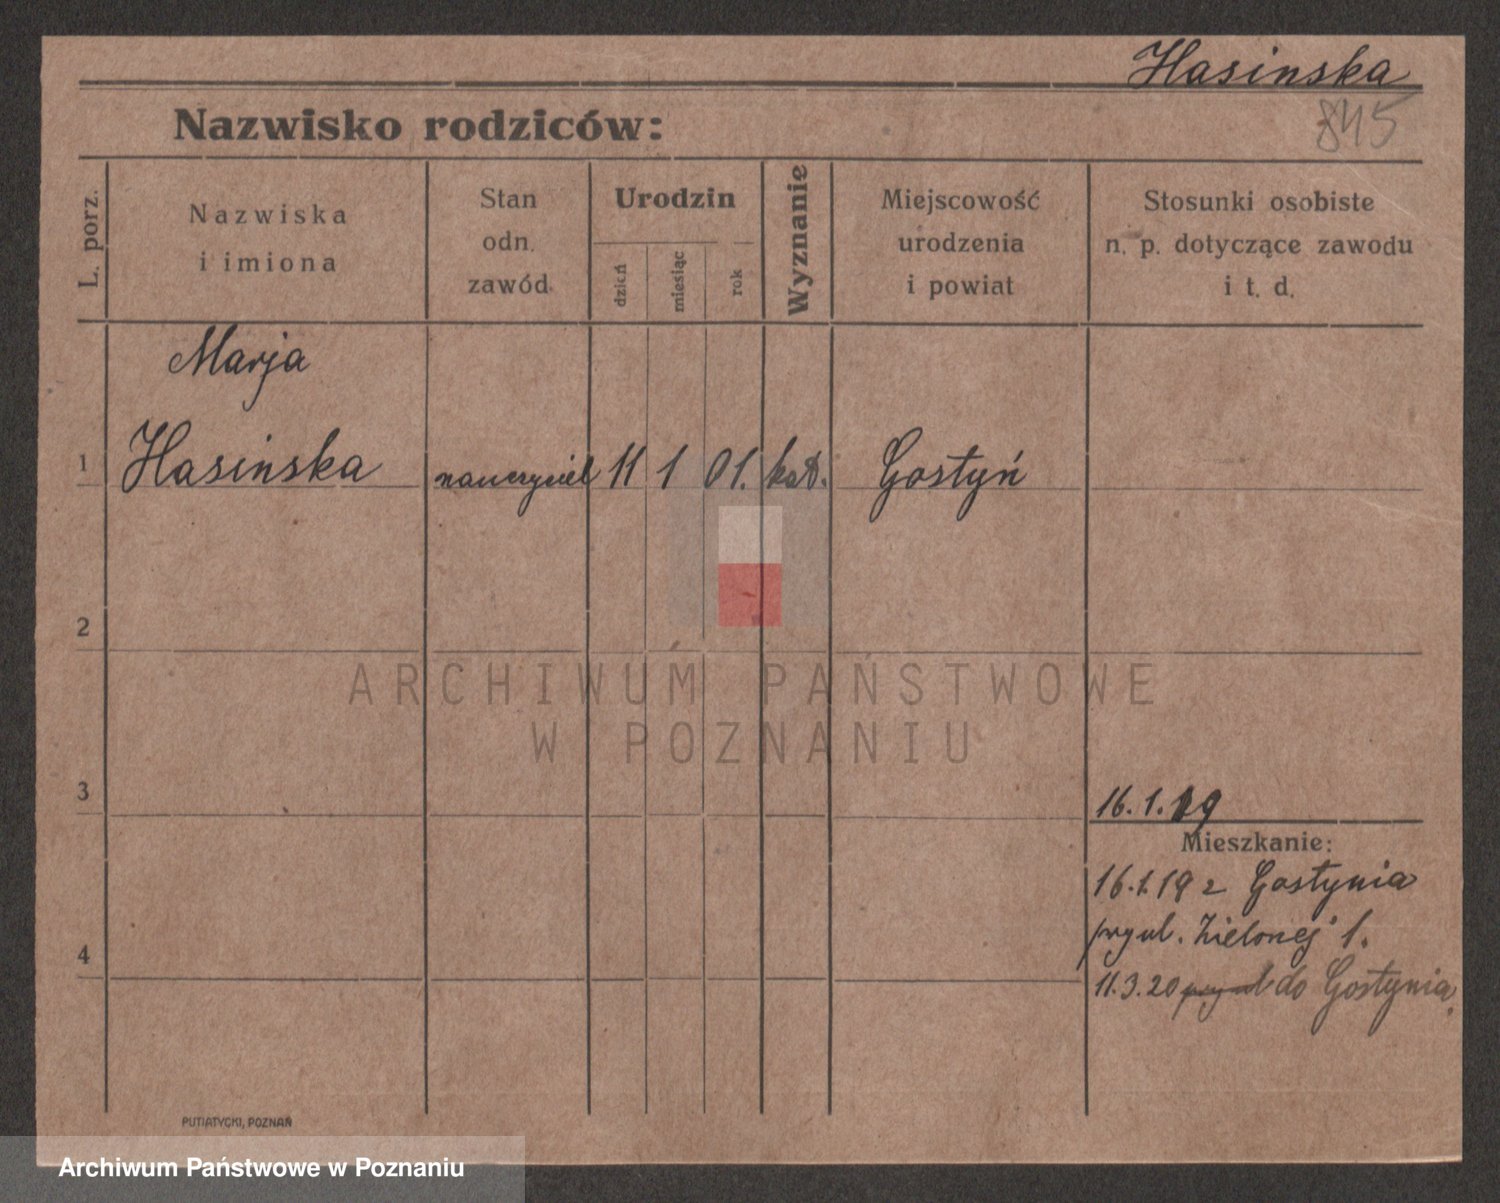 Hasinska
845
Nazwisko rodziców:
L. porz.
Nazwiska
i imiona
Stan
odn.
zawód
Urodzin
dzień
miesiąc
rok
Wyznanie
Miejscowość
urodzenia
i powiat
Stosunki osobiste
n. p. dotyczące zawodu
i t. d.
Marja
1 Hasinska nauczyciel 11 1 01. kat. Gostyń
2
ARCHIWUM PAŃSTWOWE
W POZNANIU
3
16.1.19
Mieszkanie:
16.1.19 z Gostynia
przy ul. Zielonej 1.
4
11.3.20 do Gostynia.
PUTIATYCKI, POZNAŃ
Archiwum Państwowe w Poznaniu